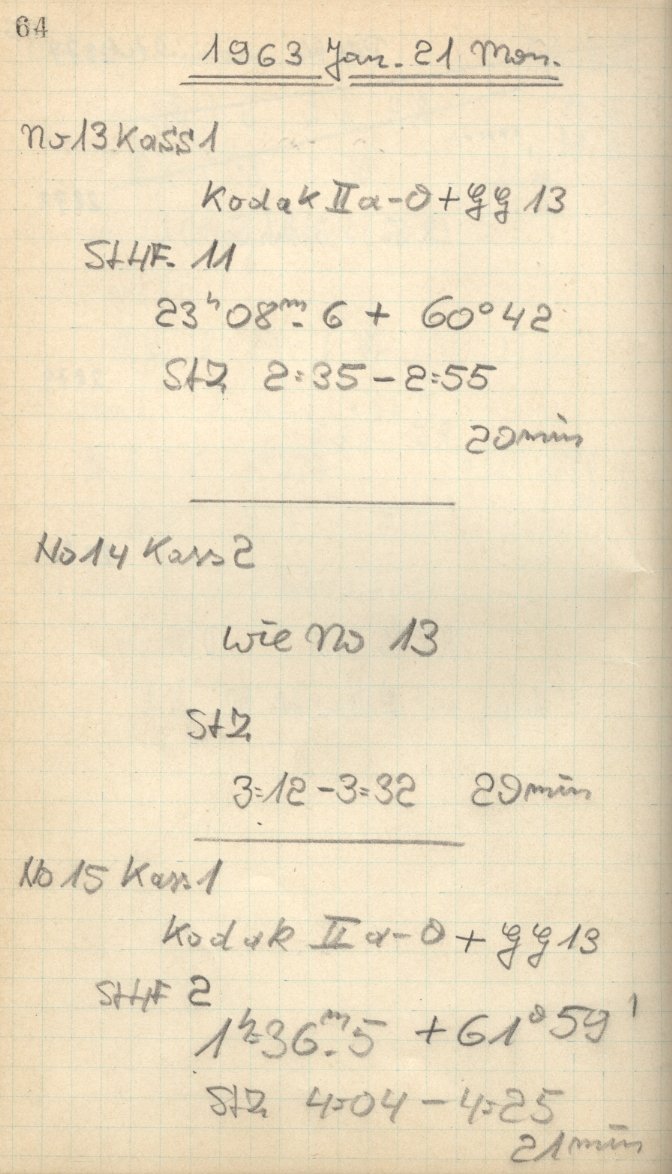 64
1963 Jan. 21 Mon.
No 13 Kass 1
Kodak II a-O + GG 13
St HF. 11
23ʰ08ᵐ.6 + 60°42
StZ 2:35 – 2:55
20 min
No 14 Kass 2
wie No 13
StZ
3:12 – 3:32 20 min
No 15 Kass. 1
Kodak II a-O + GG 13
St HF 2
1ʰ36ᵐ.5 + 61°59'
StZ 4:04 – 4:25
21 min